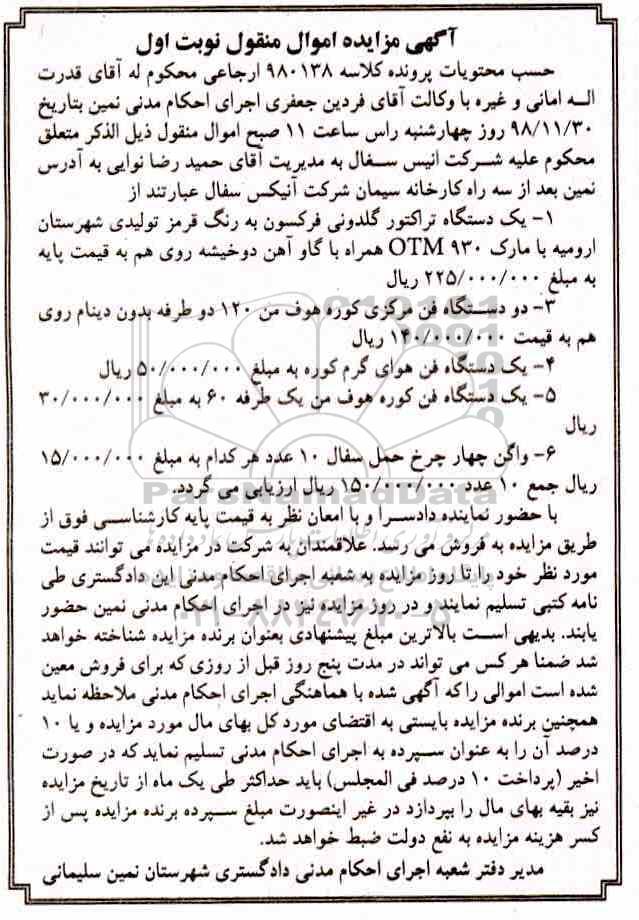 آگهی مزایده اموال منقول نوبت اول
حسب محتویات پرونده کلاسه ۹۸۰۱۳۸ ارجاعی محکوم له آقای قدرت
الـه امانی و غیره با وکالت آقای فردین جعفری اجرای احکام مدنی نمین بتاریخ
۹۸/۱۱/۳۰ روز چهارشنبه راس ساعت ۱۱ صبح اموال منقول ذیل الذکر متعلق
محکوم علیه شرکت انیس سفال به مدیریت آقای حمید رضا نوایی به آدرس
نمین بعد از سه راه کارخانه سیمان شرکت آنیکس سفال عبارتند از
۱- یک دستگاه تراکتور گلدونی فرکسون به رنگ قرمز تولیدی شهرستان
ارومیه با مارک OTM ۹۳۰ همراه با گاو آهن دوخیشه روی هم به قیمت پایه
به مبلغ ۲۲۵/۰۰۰/۰۰۰ ریال
۳- دو دستگاه فن مرکزی کوره هوف من ۱۲۰ دو طرفه بدون دینام روی
هم به قیمت ۱۴۰/۰۰۰/۰۰۰ ریال
۴- یک دستگاه فن هوای گرم کوره به مبلغ ۵۰/۰۰۰/۰۰۰ ریال
۵- یک دستگاه فن کوره هوف من یک طرفه ۶۰ به مبلغ ۳۰/۰۰۰/۰۰۰
ریال
۶- واگن چهار چرخ حمل سفال ۱۰ عدد هر کدام به مبلغ ۱۵/۰۰۰/۰۰۰
ریال جمع ۱۰ عدد ۱۵۰/۰۰۰/۰۰۰ ریال ارزیابی می گردد.
ParsNamadData
با حضور نماینده دادسرا و با امعان نظر به قیمت پایه کارشناسی فوق از
طریق مزایده به فروش می رسد. علاقمندان به شرکت در مزایده می توانند قیمت
مورد نظر خود را تا روز مزایده به شعبه اجرای احکام مدنی این دادگستری طی
نامه کتبی تسلیم نمایند و در روز مزایده نیز در اجرای احکام مدنی نمین حضور
۰۲۱-۸۸۳۴۹۶۷۰-۵
یابند. بدیهی است بالاترین مبلغ پیشنهادی بعنوان برنده مزایده شناخته خواهد
شد ضمنا هر کس می تواند در مدت پنج روز قبل از روزی که برای فروش معین
شده است اموالی را که آگهی شده با هماهنگی اجرای احکام مدنی ملاحظه نماید
همچنین برنده مزایده بایستی به اقتضای مورد کل بهای مال مورد مزایده و یا ۱۰
درصد آن را به عنوان سپرده به اجرای احکام مدنی تسلیم نماید که در صورت
اخیر (پرداخت ۱۰ درصد فی المجلس) باید حداکثر طی یک ماه از تاریخ مزایده
نیز بقیه بهای مال را بپردازد در غیر اینصورت مبلغ سپرده برنده مزایده پس از
کسر هزینه مزایده به نفع دولت ضبط خواهد شد.
مدیر دفتر شعبه اجرای احکام مدنی دادگستری شهرستان نمین سلیمانی